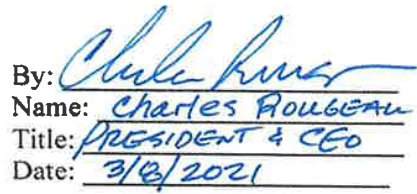 By: Charles Rougeau
Name: Charles Rougeau
Title: PRESIDENT & CEO
Date: 3/8/2021